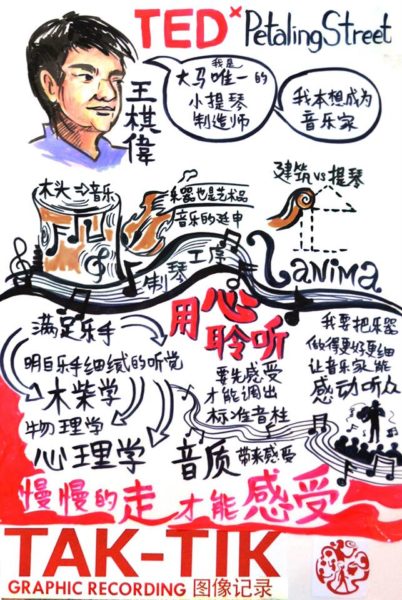 TEDx PetalingStreet
王棋偉
我是
大马唯一的
小提琴
制造师
我本想成为
音乐家
木头⇒音乐
乐器也是艺术品
音乐的延申
建筑 vs 提琴
制琴工序
L'anima
满足乐手
明白乐手细微的听觉
木柴学
物理学
心理学
用心
聆听
要先感受
才能调出
标准音柱
音质带来感受
我要把乐器
做得更好更细
让音乐家能
感动听众
慢慢的走才能感受
TAK-TIK
GRAPHIC RECORDING 图像记录